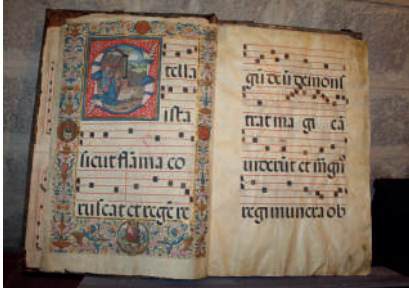 tella
ista
sicut flãma co
ruscat et regẽ re
gũ deũ demons
trat ma gi eã
uiderũt et m̃gñ
regi munera ob